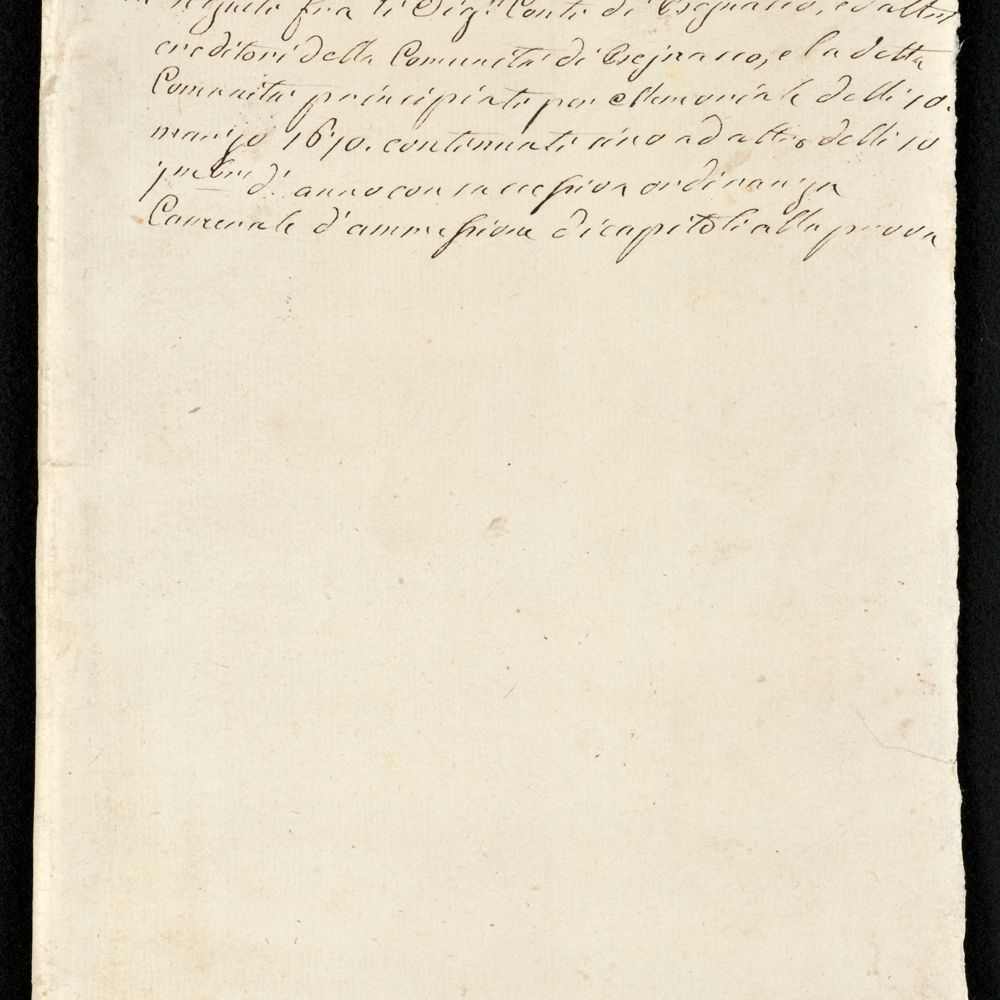 seguito fra li Sig.ri Conti di Bejnasco, ed altri
creditori della Comunità di Bejnasco, e la detta
Comunità principiati per Memoriale delli 10.
marzo 1670. continuati sino ad altro delli 10
d.º anno con successiva ordinanza
Camerale d'ammessione di capitoli alla prova